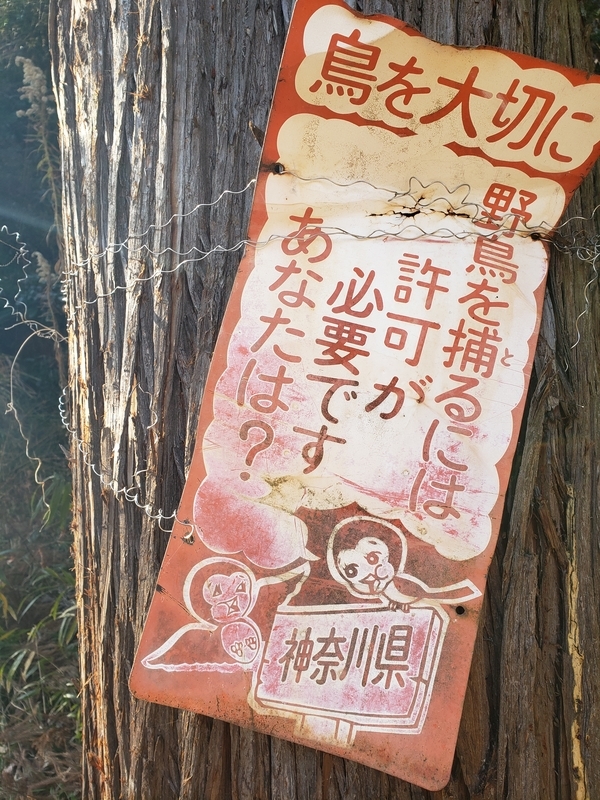 鳥を大切に
野鳥を捕るには
と
許可が
必要です
あなたは？
神奈川県